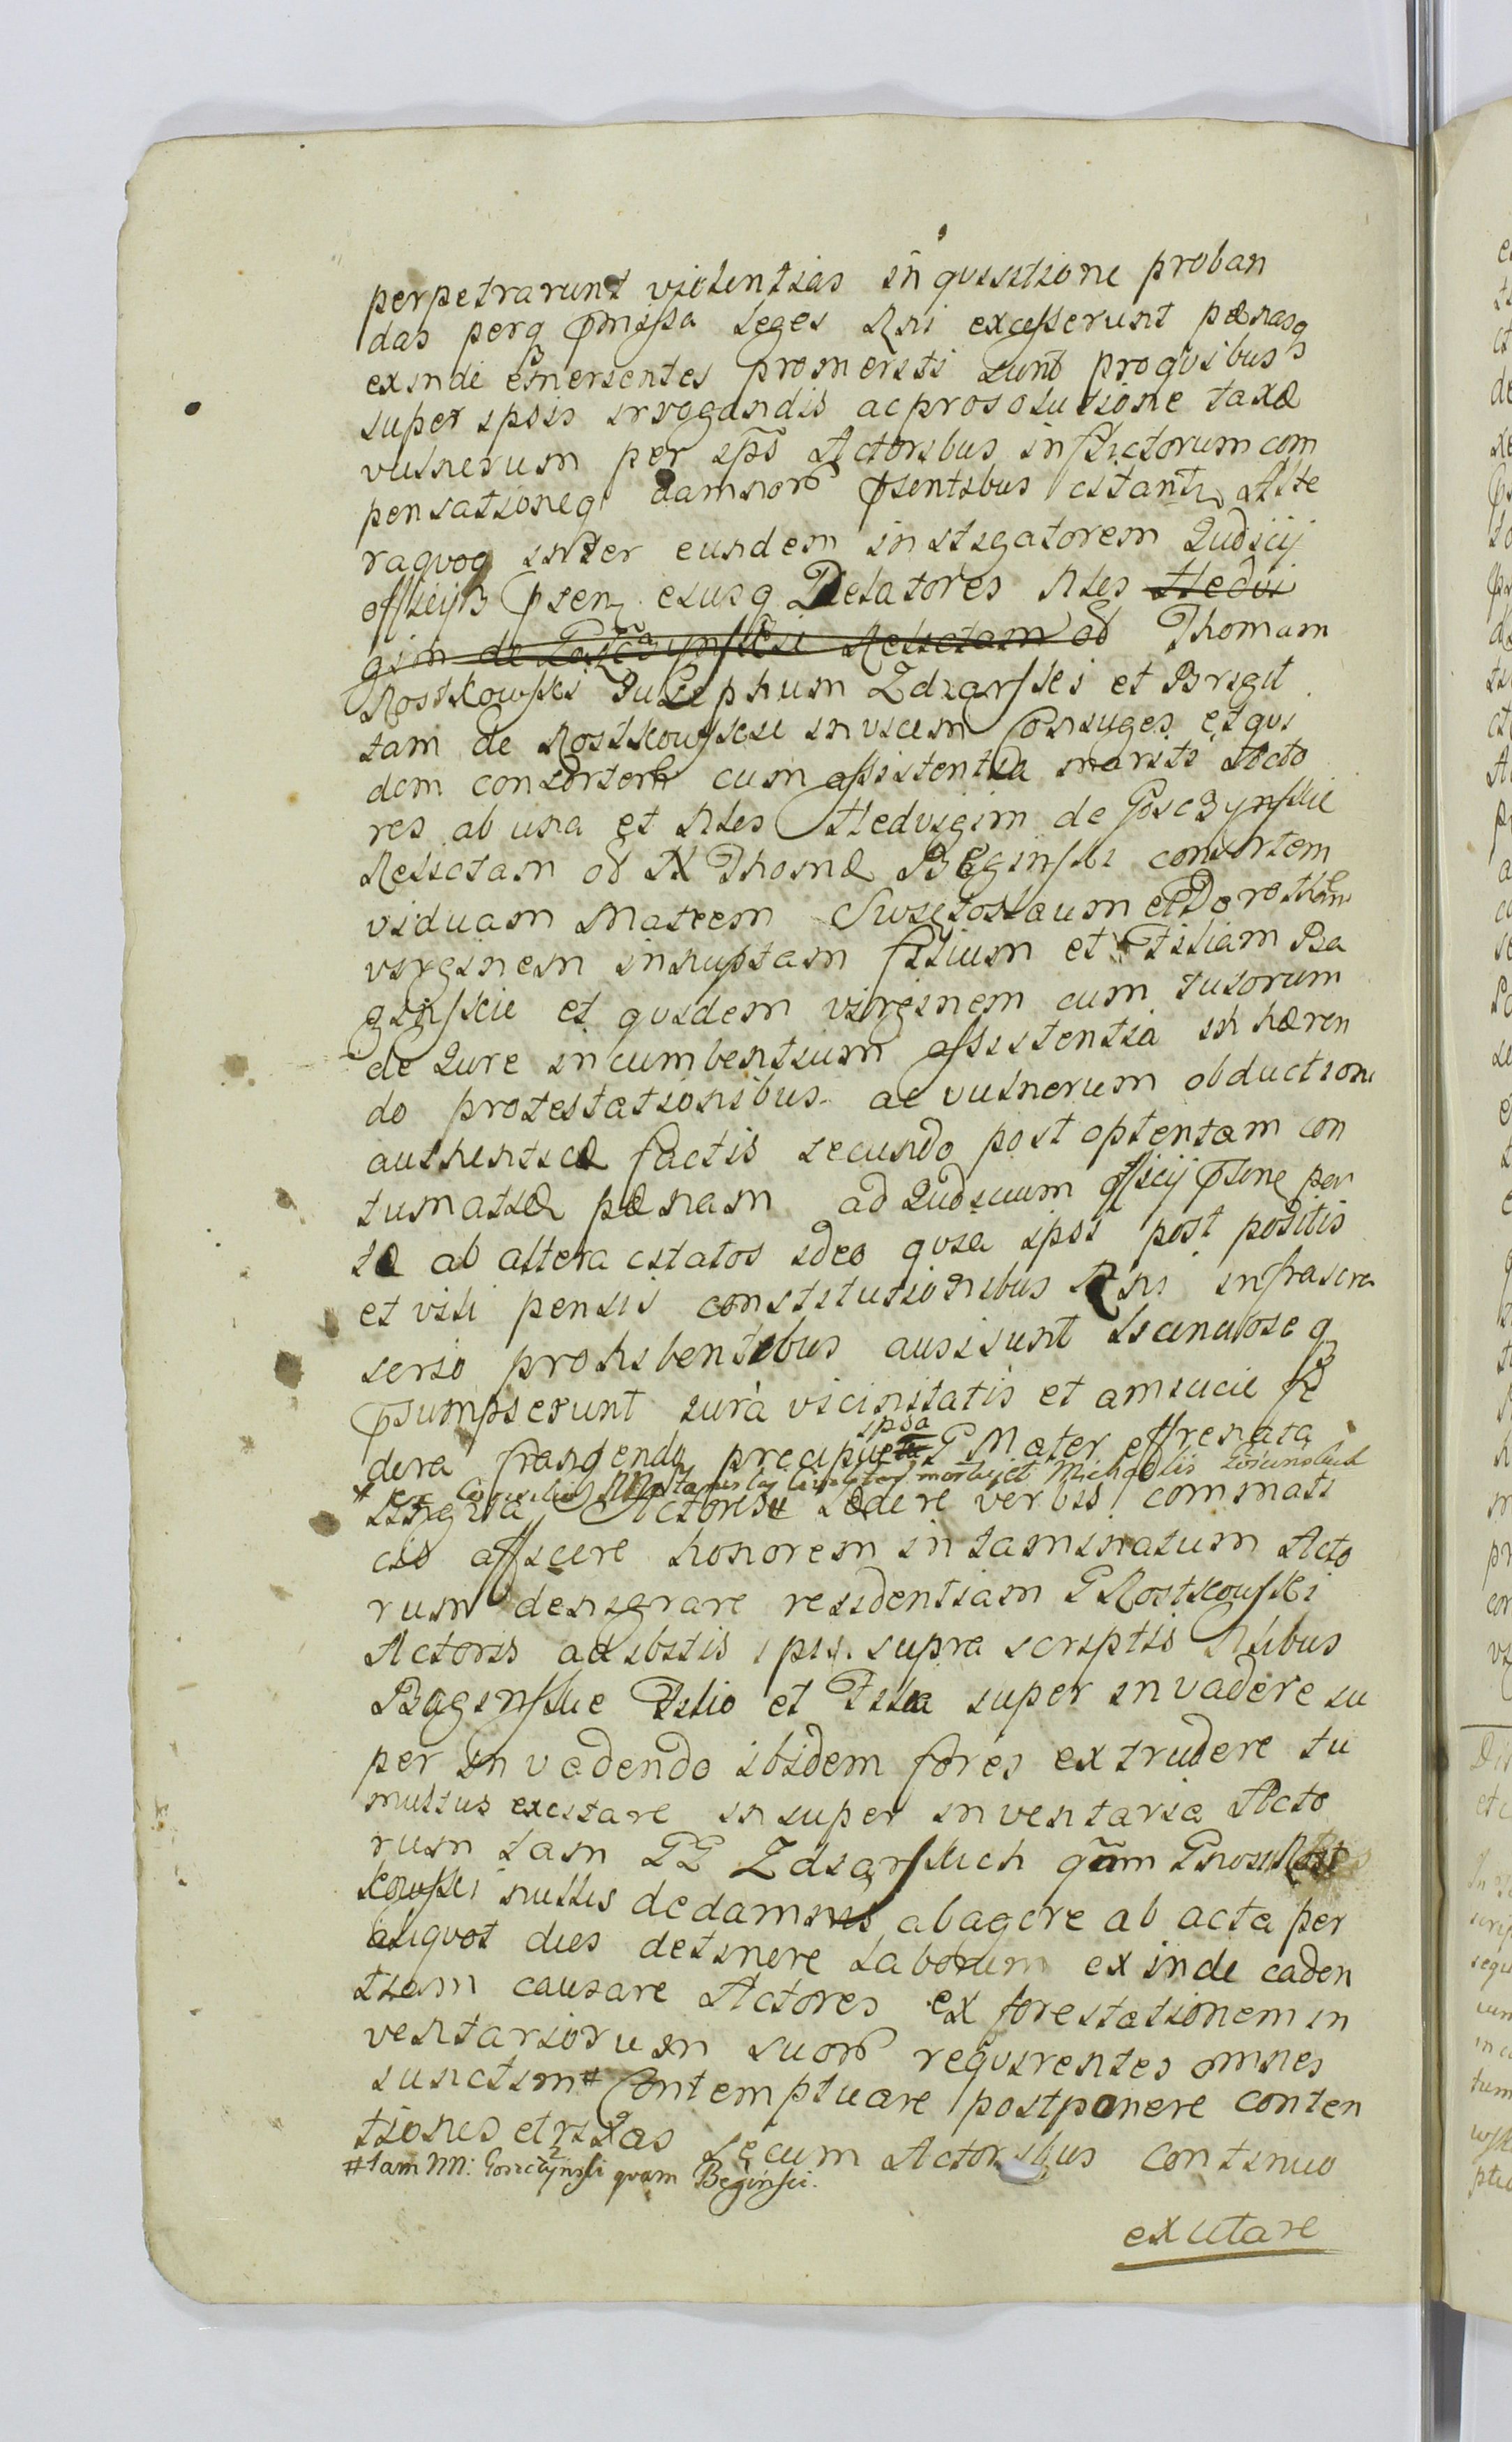 perpetrarunt violentias inquisitione proban
das perq præmissa leges Rni excesserunt pænasq
exinde emersentes promeriti sunt proqvibus
super ipsis irrogandis ac pro solutione taxæ
vulnerum per ipsos Actoribus inflictorum com
pensationeq damnor præsentibus citantr Alte
raqvoq inter eundem instigatorem Judicij
officijq præsen ejusq Delatores Nles Hedvi
gim de Goszczynskie Relictam od Thomam
Rostkowski Josephum Zdzarski et Brigit
tam de Rostkowskie invicem Conjuges et qvi
dem consortem cum assistentia mariti Acto
res ab una et Nles Hedvigim de Gosczynskie
Relictam od N Thomæ Bęginski consortem
viduam Matrem Swiętoslaum et Dorotheam
virginem innuptam filium et Filiam Ba
ginskie et qvidem virginem cum tutorum
de Jure incumbentium assistentia inhæren
do protestationibus ac vulnerum obductioni
authenticæ factis secundo post optentam con
tumatiæ pænam ad Judicium officij præsene par
te ab altera citatos ideo qvia ipsi post positis
et vili pensis constitutionibus Rni infrascra
serio prohibentibus ausi sunt licentioseq
præsumpserunt jura vicinitatis et amicitiæ fæ
dera frangendo precipue ipsa G Mater effrenata
* ex Consilio NN Stanislai et Michaelis
lingva Actores # lædere verbis commati
cis afficere honorem intaminatum Acto
rum denigrare residentiam G Rostkowski
Actoris adibitis ipsis supra scriptis Nlibus
Baginskie Filio et Filia super invadere su
per invadendo ibidem fores extrudere tu
multus excitare insuper inventaria Acto
rum tam GG Zdzarskich qvam Gnosi Rost
kowski nullis de damnis abagere ab acta per
aliqvot dies detinere laborum exinde caden
tiam causare Actores ex forestationem in
ventariorum suor reqvirentes omnes
junctim # Contemptuare postponere conten
tiones et rixas secum Actoribus continuo
# tam NN: Goszczyński quam Bęgiński.
excitare